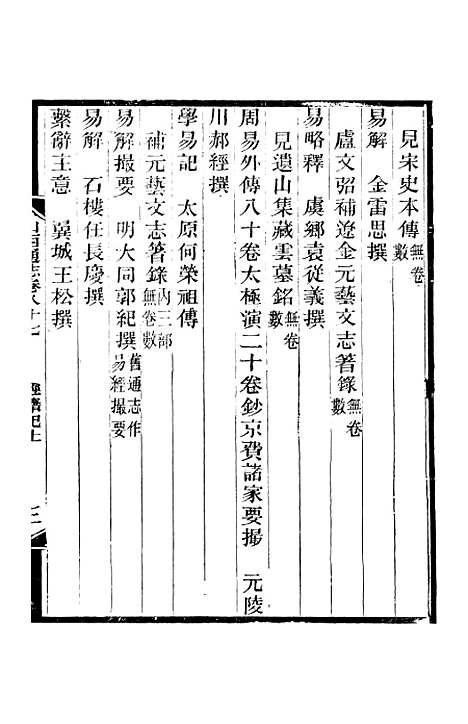 見宋史本傳無卷數
易解　金雷思撰
盧文弨補遼金元藝文志著錄無卷數
易略釋　虞鄉袁從義撰
見遺山集藏雲墓銘無卷數
周易外傳八十卷太極演二十卷鈔京費諸家要撮　元陵
川郝經撰
學易記　太原何榮祖傳
補元藝文志著錄內三部無卷數
易解撮要　明大同郭紀撰舊通志作易經撮要
易解　石樓任長慶撰
繫辭主意　翼城王松撰
山西通志卷八十七　經籍記上　三